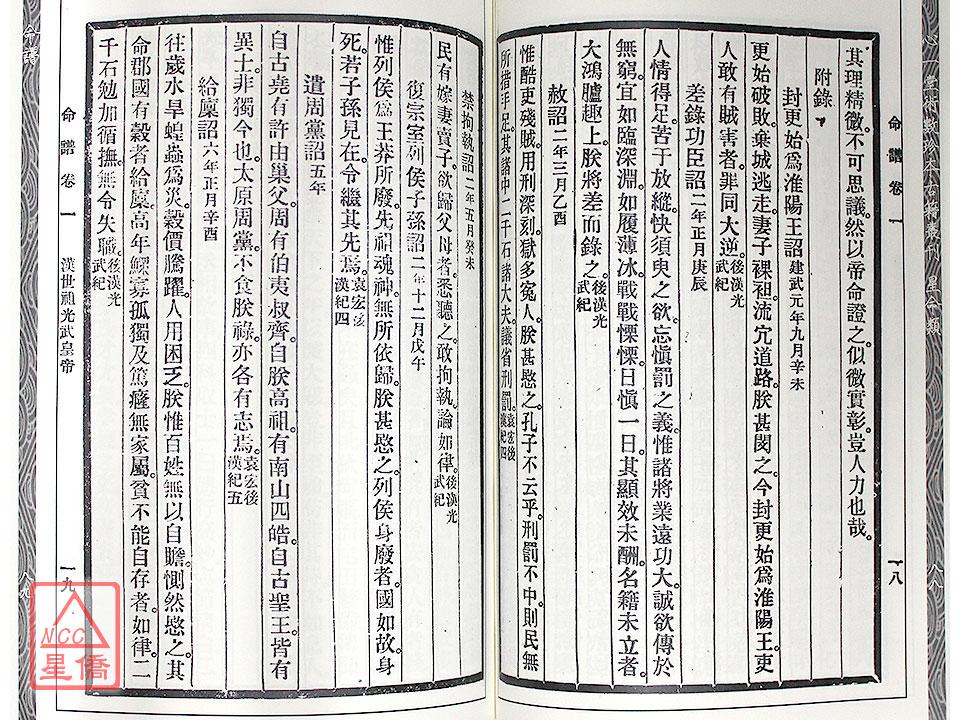 命譜卷一
一八
其理精微。不可思議。然以帝命證之。似微實彰。豈人力也哉。
附錄
封更始為淮陽王詔 建武元年九月辛未
更始破敗。棄城逃走。妻子裸袒。流宂道路。朕甚閔之。今封更始為淮陽王。吏
人敢有賊害者。罪同大逆。後漢光武紀
差錄功臣詔 二年正月庚辰
人情得足。苦于放縱。快須臾之欲。忘愼罰之義。惟諸將業遠功大。誠欲傳於
無窮。宜如臨深淵。如履薄冰。戰戰慄慄。日愼一日。其顯效未酬。名籍未立者。
大鴻臚趣上。朕將差而錄之。後漢光武紀
赦詔 二年三月乙酉
惟酷吏殘賊。用刑深刻。獄多寃人。朕甚愍之。孔子不云乎。刑罰不中。則民無
所措手足。其諸中二千石諸大夫。議省刑罰。袁宏後漢紀四
禁拘執詔 二年五月癸未
民有嫁妻賣子。欲歸父母者。悉聽之。敢拘執。論如律。後漢光武紀
復宗室列侯子孫詔 二年十二月戊午
惟列侯爲王莽所廢。先祖魂神。無所依歸。朕甚愍之。列侯身廢者。國如故。身
死。若子孫見在。令繼其先焉。袁宏後漢紀四
遣周黨詔 五年
自古堯有許由巢父。周有伯夷叔齊。自朕高祖。有南山四皓。自古聖王皆有
異士。非獨今也。太原周黨。不食朕祿。亦各有志焉。袁宏後漢紀五
給廩詔 六年正月辛酉
往歲水旱蝗蟲爲災。穀價騰躍。人用困乏。朕惟百姓無以自贍。惻然愍之。其
命郡國有穀者。給廩高年鰥寡孤獨及篤癃無家屬。貧不能自存者。如律。二
千石勉加循撫。無令失職。後漢光武紀
命譜卷一
漢世祖光武皇帝
一九
NCC
星僑